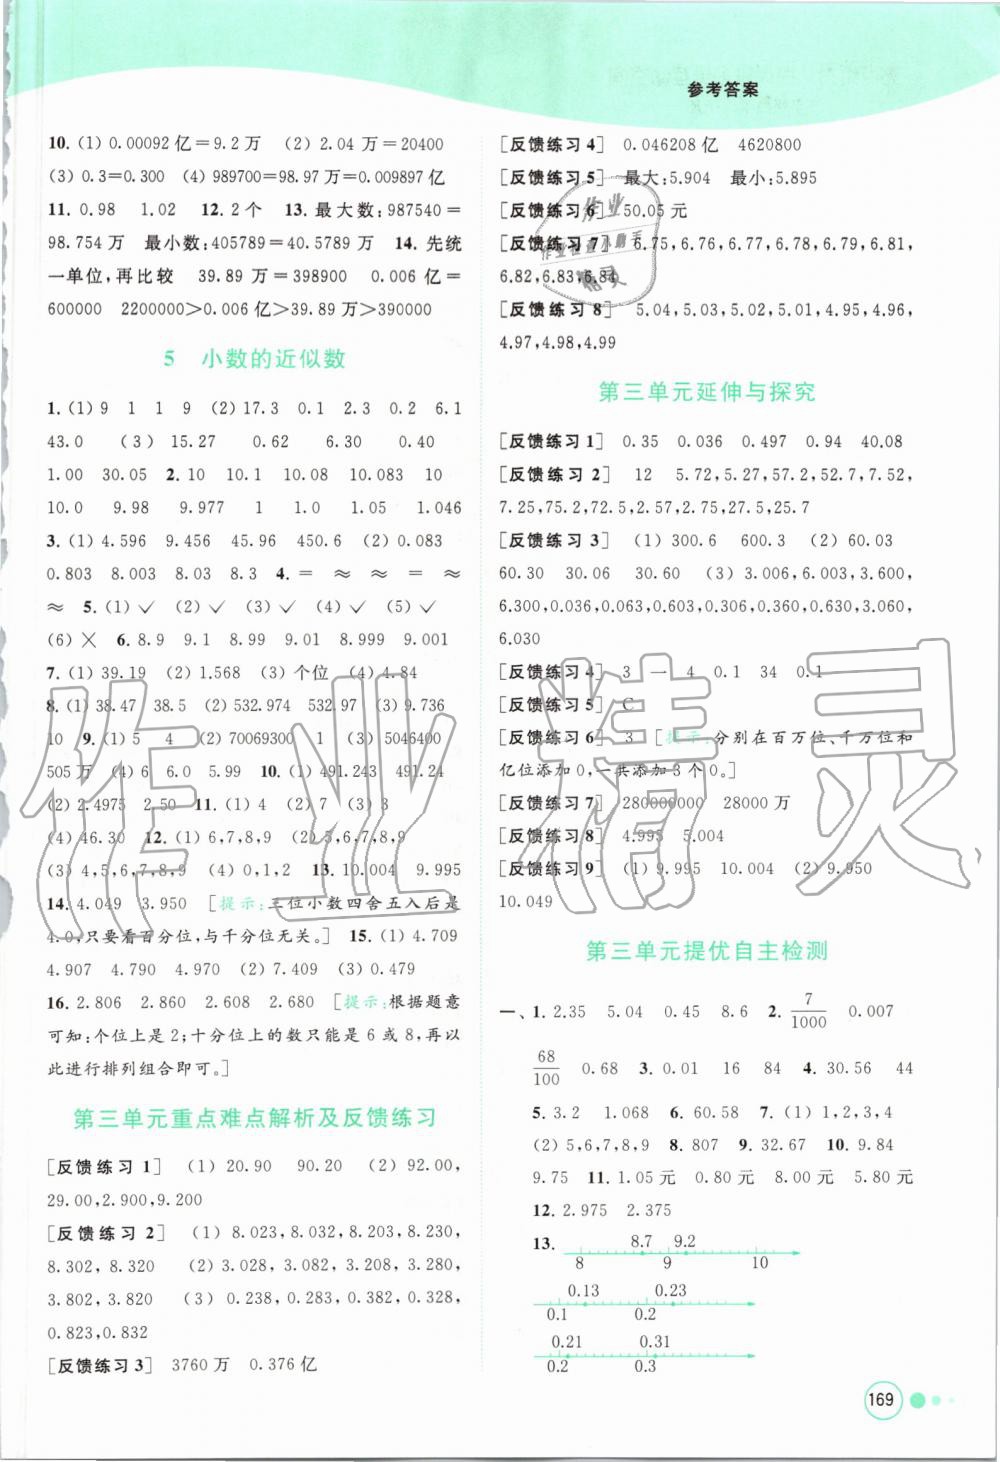 参考答案
10. (1) 0.00092亿=9.2万 (2) 2.04万=20400
(3) 0.3=0.300 (4) 989700=98.97万=0.009897亿
11. 0.98 1.02 12. 2个 13. 最大数:987540=
98.754万 最小数:405789=40.5789万 14. 先统
一单位,再比较 39.89万=398900 0.006亿=
600000 2200000>0.006亿>39.89万>390000
5 小数的近似数
1. (1) 9 1 1 9 (2) 17.3 0.1 2.3 0.2 6.1
43.0 (3) 15.27 0.62 6.30 0.40
1.00 30.05 2. 10 10.1 10.08 10.083 10
10.0 9.98 9.977 1 1.0 1.05 1.046
3. (1) 4.596 9.456 45.96 450.6 (2) 0.083
0.803 8.003 8.03 8.3 4. = ≈ ≈ = ≈
≈ 5. (1) ✓ (2) ✓ (3) ✓ (4) ✓ (5) ✓
(6) ✕ 6. 8.9 9.1 8.99 9.01 8.999 9.001
7. (1) 39.19 (2) 1.568 (3) 个位 (4) 4.84
8. (1) 38.47 38.5 (2) 532.974 532.97 (3) 9.736
10 9. (1) 5 4 (2) 70069300 1 (3) 5046400
505万 (4) 6 6.0 5.99 10. (1) 491.243 491.24
(2) 2.4975 2.50 11. (1) 4 (2) 7 (3) 3
(4) 46.30 12. (1) 6,7,8,9 (2) 5,6,7,8,9
(3) 4,5,6,7,8,9 (4) 0,1,2 13. 10.004 9.995
14. 4.049 3.950 [提示:三位小数四舍五入后是
4.0,只要看百分位,与千分位无关。] 15. (1) 4.709
4.907 4.790 4.970 (2) 7.409 (3) 0.479
16. 2.806 2.860 2.608 2.680 [提示:根据题意
可知:个位上是2;十分位上的数只能是6或8,再以
此进行排列组合即可。]
第三单元重点难点解析及反馈练习
[反馈练习1] (1) 20.90 90.20 (2) 92.00,
29.00,2.900,9.200
[反馈练习2] (1) 8.023,8.032,8.203,8.230,
8.302,8.320 (2) 3.028,3.082,3.208,3.280,
3.802,3.820 (3) 0.238,0.283,0.382,0.328,
0.823,0.832
[反馈练习3] 3760万 0.376亿
[反馈练习4] 0.046208亿 4620800
[反馈练习5] 最大:5.904 最小:5.895
[反馈练习6] 50.05元
[反馈练习7] 6.75,6.76,6.77,6.78,6.79,6.81,
6.82,6.83,6.84
[反馈练习8] 5.04,5.03,5.02,5.01,4.95,4.96,
4.97,4.98,4.99
第三单元延伸与探究
[反馈练习1] 0.35 0.036 0.497 0.94 40.08
[反馈练习2] 12 5.72,5.27,57.2,52.7,7.52,
7.25,75.2,72.5,2.57,2.75,27.5,25.7
[反馈练习3] (1) 300.6 600.3 (2) 60.03
60.30 30.06 30.60 (3) 3.006,6.003,3.600,
6.300,0.036,0.063,0.603,0.306,0.360,0.630,3.060,
6.030
[反馈练习4] 3 一 4 0.1 34 0.1
[反馈练习5] C
[反馈练习6] 3 [提示:分别在百万位、千万位和
亿位添加0,一共添加3个0。]
[反馈练习7] 280000000 28000万
[反馈练习8] 4.995 5.004
[反馈练习9] (1) 9.995 10.004 (2) 9.950
10.049
第三单元提优自主检测
一、1. 2.35 5.04 0.45 8.6 2. 7/1000 0.007
68/100 0.68 3. 0.01 16 84 4. 30.56 44
5. 3.2 1.068 6. 60.58 7. (1) 1,2,3,4
(2) 5,6,7,8,9 8. 807 9. 32.67 10. 9.84
9.75 11. 1.05元 0.80元 8.00元 5.80元
12. 2.975 2.375
13. 8.7 9.2
8 9 10
0.13 0.23
0.1 0.2
0.21 0.31
0.2 0.3
169
作业精灵
作业
作业检查小助手
精灵